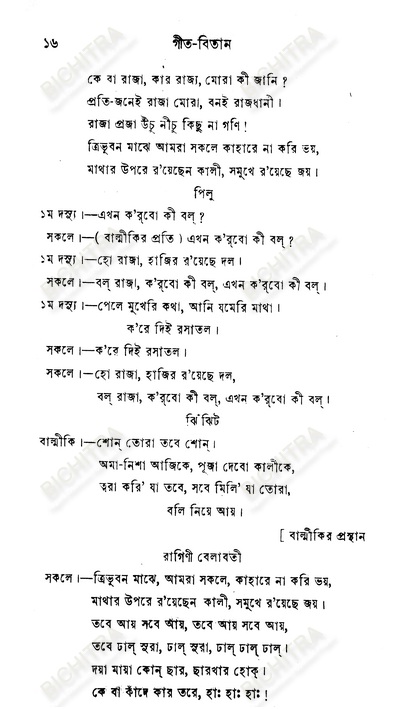 ১৬ গীত-বিতান
কে বা রাজা, কার রাজ্য, মোরা কী জানি ?
প্রতি-জনেই রাজা মোরা, বনই রাজধানী ।
রাজা প্রজা উঁচু নীচু কিছু না গণি !
ত্রিভুবন মাঝে আমরা সকলে কাহারে না করি ভয়,
মাথার উপরে র'য়েছেন কালী, সমুখে র'য়েছে জয় ।
পিলু
১ম দস্যু ।—এখন ক'র্‌বো কী বল্ ?
সকলে ।—( বাল্মীকির প্রতি ) এখন ক'র্‌বো কী বল্ ?
১ম দস্যু ।—হো রাজা, হাজির র'য়েছে দল ।
সকলে ।—বল্ রাজা, ক'র্‌বো কী বল্, এখন ক'র্‌বো কী বল্ ।
১ম দস্যু ।—পেলে মুখেরি কথা, আনি যমেরি মাথা ।
ক'রে দিই রসাতল ।
সকলে ।—ক'রে দিই রসাতল ।
সকলে ।—হো রাজা, হাজির র'য়েছে দল,
বল্ রাজা, ক'র্‌বো কী বল্, এখন ক'র্‌বো কী বল্ ।
ঝিঁঝিট
বাল্মীকি ।—শোন্ তোরা তবে শোন্ ।
অমা-নিশা আজিকে, পূজা দেবো কালীকে,
ত্বরা করি' যা তবে, সবে মিলি' যা তোরা,
বলি নিয়ে আয় ।
[ বাল্মীকির প্রস্থান
রাগিণী বেলাবতী
সকলে ।—ত্রিভুবন মাঝে, আমরা সকলে, কাহারে না করি ভয়,
মাথার উপরে র'য়েছেন কালী, সমুখে র'য়েছে জয় ।
তবে আয় সবে আয়, তবে আয় সবে আয়,
তবে ঢাল্ সুরা, ঢাল্ সুরা, ঢাল্ ঢাল্ ঢাল্ ।
দয়া মায়া কোন্ ছার, ছারখার হোক্ ।
কে বা কাঁদে কার তরে, হাঃ হাঃ হাঃ !
BICHITRA